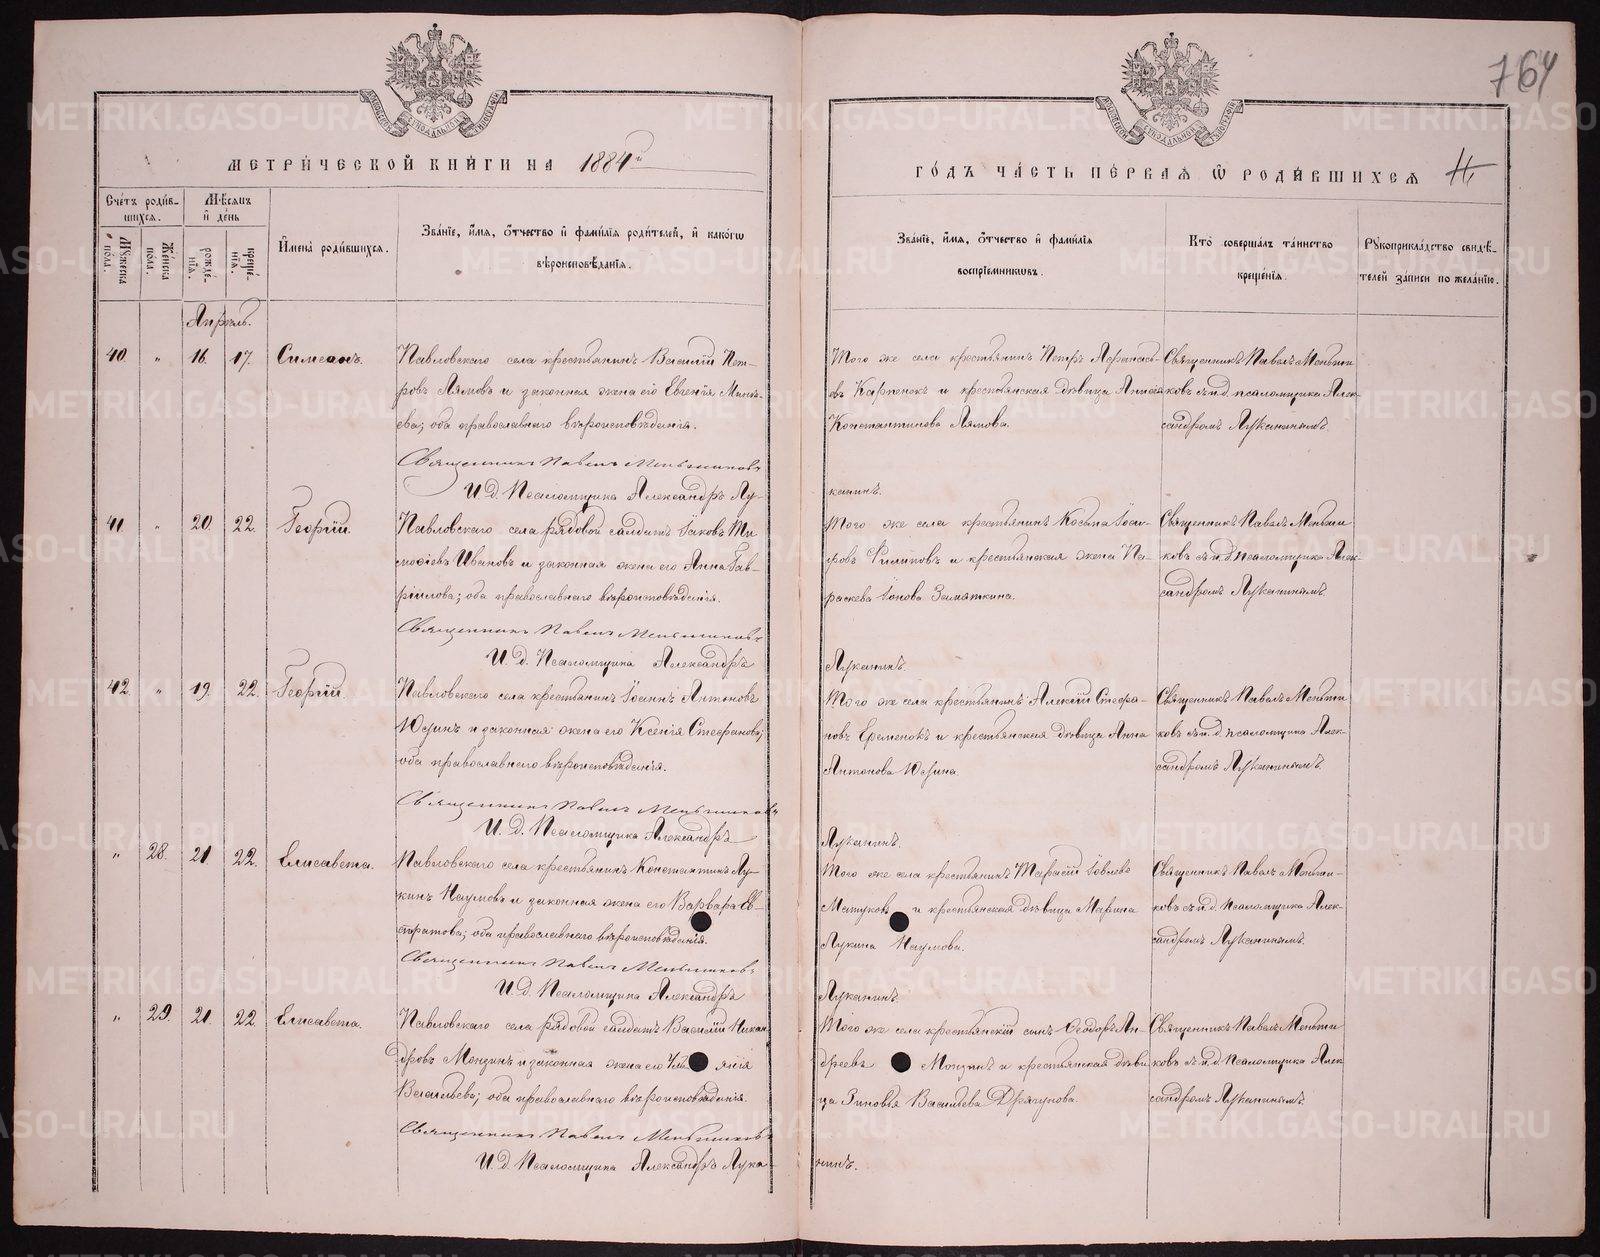 764
МЕТРИЧЕСКОЙ КНИГИ НА 1884й
ГОДЪ ЧАСТЬ ПЕРВАЯ Ѿ РОДИВШИХСЯ
Счетъ родившихся.
Мѣсяцъ и день
Мужеска пола.
Женска пола.
рожденія.
крещенія.
Имена родившихся.
Званіе, имя, отчество и фамилія родителей, и какогѡ
вѣроисповѣданія.
Званіе, имя, отчество и фамилія
воспріемниковъ.
Кто совершалъ таинство
крещенія.
Рукоприкладство свидѣтелей записи по желанію.
Апрѣль.
40 " 16. 17. Симеонъ.
Павловскаго села крестьянинъ Василій Пет-
ровъ Лямовъ и законная жена его Евгенія Мине-
ева; оба православнаго вѣроисповѣданія.
Священникъ Павелъ Меньшиковъ
И. Д. Псаломщика Александръ Лу-
канинъ.
Того же села крестьянинъ Петръ Аѳанась-
евъ Карпенокъ и крестьянская дѣвица Анисія
Константинова Лямова.
Священникъ Павелъ Меньши
ковъ съ и. д. псаломщика Алек-
сандромъ Лукининымъ.
41 " 20. 22. Георгій.
Павловскаго села рядовой салдатъ Іаковъ Ти
моѳіевъ Ивановъ и законная жена его Анна Гав-
ріилова; оба православнаго вѣроисповѣданія.
Священникъ Павелъ Меньшиковъ
И. Д. Псаломщика Александръ
Луканинъ.
Того же села крестьянинъ Косьма Іоси-
фовъ Филиповъ и крестьянская жена Па-
раскева Іонова Замяткина.
Священникъ Павелъ Меньши
ковъ съ и. д. псаломщика Алек-
сандромъ Луканинымъ.
42. " 19. 22. Георгій.
Павловскаго села крестьянинъ Іоаннъ Антоновъ
Юзинъ и законная жена его Ксенія Стефанова;
оба православнаго вѣроисповѣданія.
Священникъ Павелъ Меньшиковъ
И. Д. Псаломщика Александръ
Луканинъ.
Того же села крестьянинъ Алексій Стефа-
новъ Еременокъ и крестьянская дѣвица Анна
Антонова Юзина.
Священникъ Павелъ Меньши
ковъ съ и. д. псаломщика Алек-
сандромъ Луканинымъ.
" 28. 21 22. Елисавета.
Павловскаго села крестьянинъ Константинъ Лу-
кинъ Наумовъ и законная жена его Варвара Ев-
стратова; оба православнаго вѣроисповѣданія.
Священникъ Павелъ Меньшиковъ
И. Д. Псаломщика Александръ
Луканинъ.
Того же села крестьянинъ Тарасій Іовлевъ
и крестьянская дѣвица Марина
Лукина Наумова.
Священникъ Павелъ Меньши-
ковъ съ и. д. Псаломщика Алек-
сандромъ Луканинымъ.
" 29. 21. 22 Елисавета.
Павловскаго села рядовой салдатъ Василій Никан
дровъ Мензинъ и законная жена его
Васильева; оба православнаго вѣроисповѣданія.
Священникъ Павелъ Меньшиковъ
И. Д. Псаломщика Александръ Лука-
нинъ.
Того же села крестьянскій сынъ Ѳеодоръ Ан-
дреевъ Мензинъ и крестьянская дѣви
ца Зиновія Васильева Драгунова.
Священникъ Павелъ Меньши
ковъ съ и. д. псаломщика Алек
сандромъ Луканинымъ.
METRIKI.GASO-URAL.RU